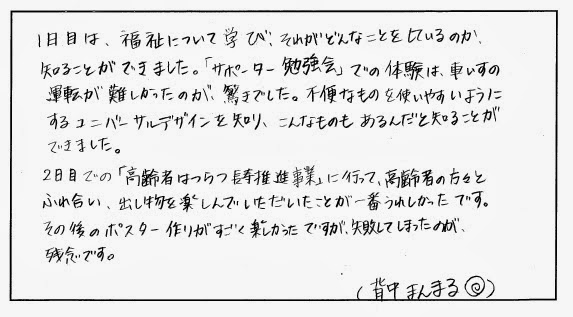 1日目は、福祉について学び、それがどんなことをしているのか、
知ることができました。「サポーター勉強会」での体験は、車いすの
運転が難しかったのが、驚きでした。不便なものを使いやすいように
するユニバーサルデザインを知り、こんなものもあるんだと知ることが
できました。
2日目での「高齢者はつらつ長寿推進事業」に行って、高齢者の方々と
ふれ合い、出し物を楽しんでいただいたことが一番うれしかったです。
その後のポスター作りがすごく楽しかったですが、失敗してしまったのが、
残念です。
(背中まんまる@)